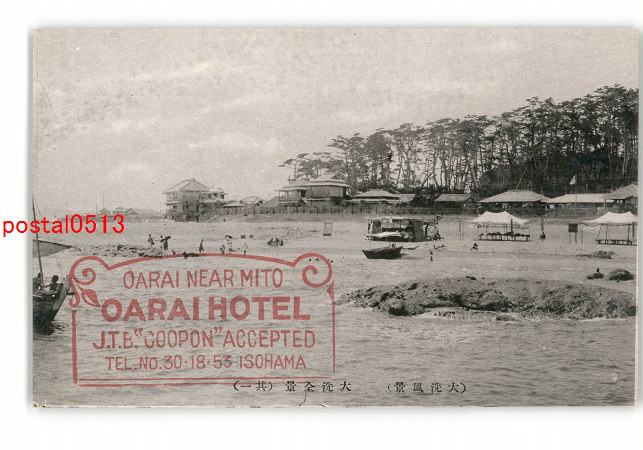 postal0513
OARAI NEAR MITO
OARAI HOTEL
J.T.B."COOPON" ACCEPTED
TEL.NO.30·18·53 ISOHAMA
(一其) 景全洗大 (景風洗大)